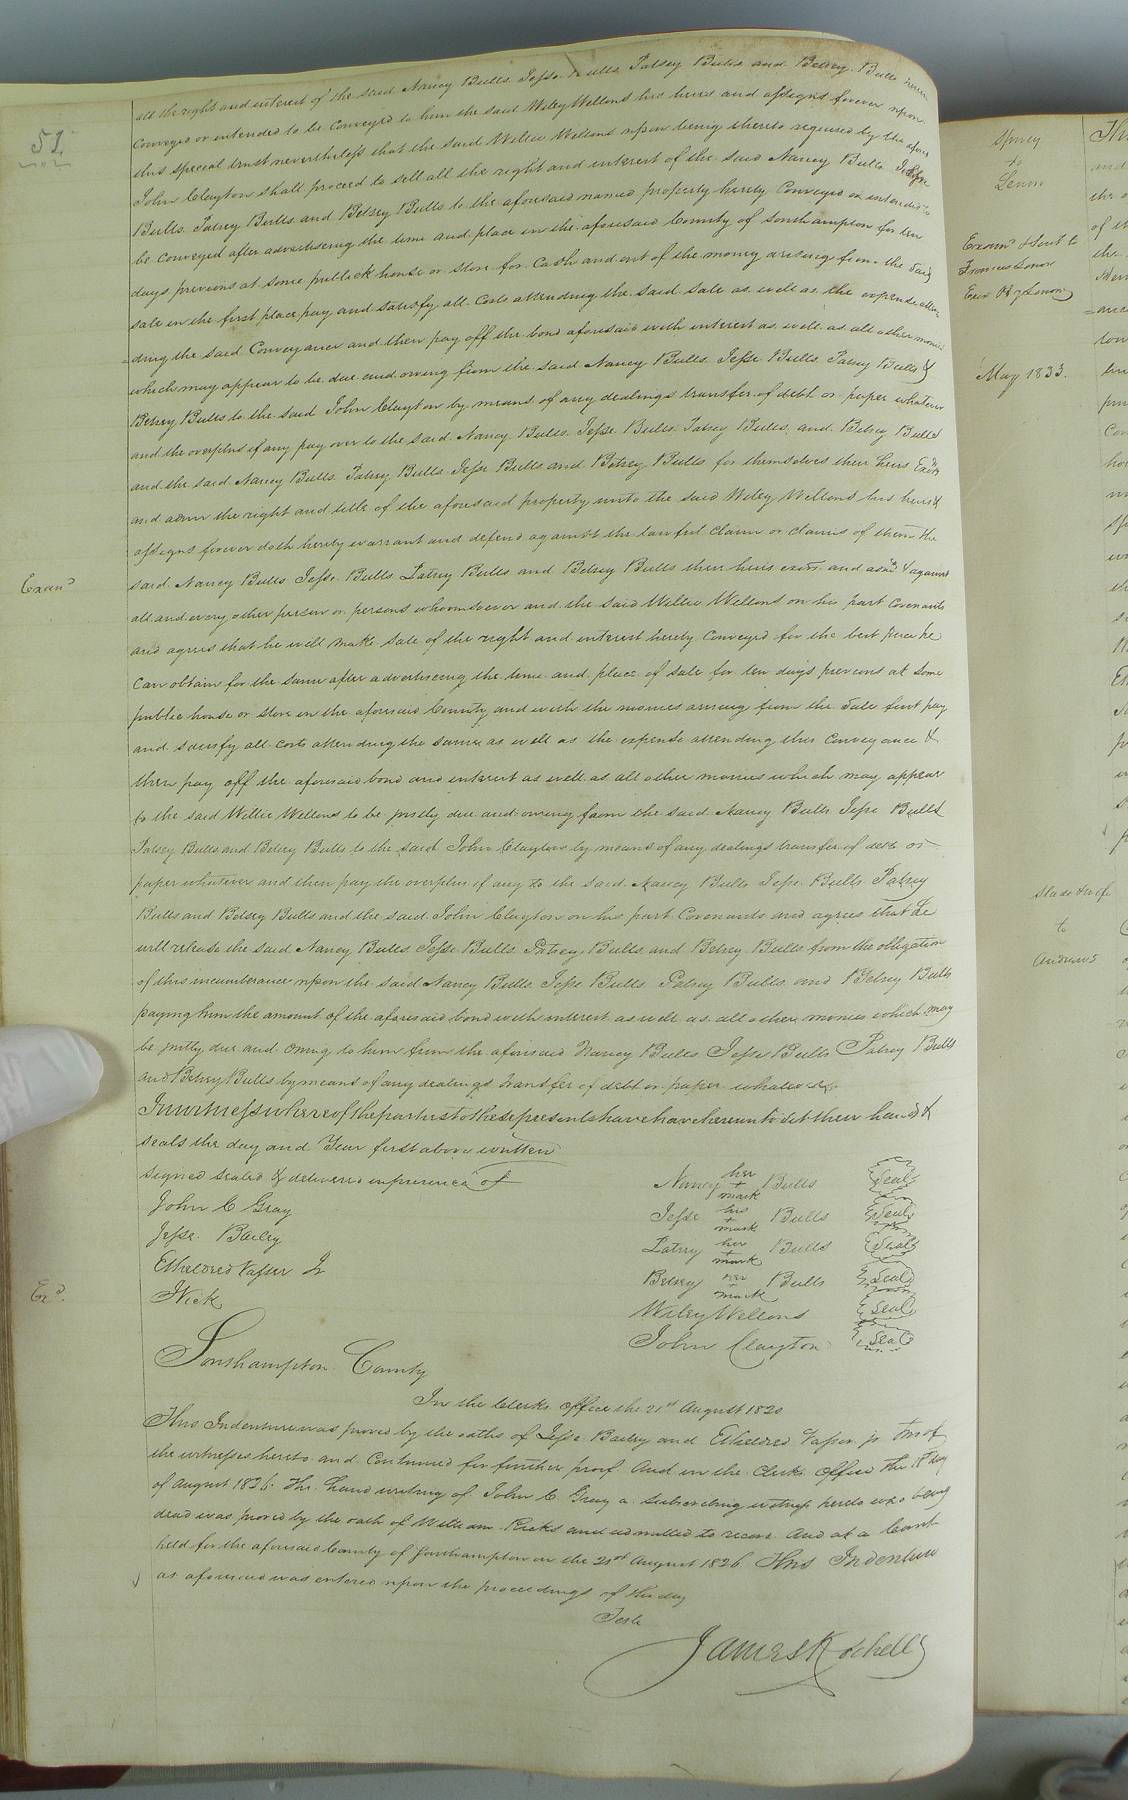 51.
all the right and interest of the said Nancy Bulls Jesse Bulls Patsey Bulls and Betsey Bulls
Conveyed or intended to be Conveyed to him the said Wiley Wellons his heirs and assigns forever upon
this special trust nevertheless that the said Willie Wellons upon being thereto required by the
John Clayton shall proceed to sell all the right and interest of the said Nancy Bulls Jesse
Bulls Patsey Bulls and Betsey Bulls to the aforesaid named property hereby Conveyed or intended to
be Conveyed after advertising the time and place in the aforesaid County of Southampton for ten
days previous at some publick house or store for Cash and out of the money arising from the said
sale in the first place pay and satisfy all Costs attending the said sale as well as the expense atten
=ding the said Conveyance and then pay off the bond aforesaid with interest as well as all other monies
which may appear to be due and owing from the said Nancy Bulls Jesse Bulls Patsey Bulls &
Betsey Bulls to the said John Clayton by means of any dealings transfer of debt or paper whatever
and the overplus if any pay over to the said Nancy Bulls Jesse Bulls Patsey Bulls and Betsey Bulls
and the said Nancy Bulls Patsey Bulls Jesse Bulls and Betsey Bulls for themselves their heirs Exors
and adm the right and title of the aforesaid property unto the said Wiley Wellons his heirs &
assigns forever doth hereby warrant and defend against the lawful claim or claims of them the
said Nancy Bulls Jesse Bulls Patsey Bulls and Betsey Bulls their heirs exors and admrs & against
Examd
all and every other person or persons whomsoever and the said Willie Wellons on his part Covenants
and agrees that he will make sale of the right and interest hereby Conveyed for the best price he
Can obtain for the same after advertiseing the time and place of sale for ten days previous at some
public house or store in the aforesaid County and with the monies arising from the Sale first pay
and satisfy all Costs attending the same as well as the expense attending this Conveyance &
then pay off the aforesaid bond and interest as well as all other monies which may appear
to the said Willie Wellons to be justly due and owing from the said Nancy Bulls Jesse Bulls
Patsey Bulls and Betsey Bulls to the said John Clayton by means of any dealings transfer of debt or
paper whatever and then pay the overplus if any to the said Nancy Bulls Jesse Bulls Patsey
Bulls and Betsey Bulls and the said John Clayton on his part Covenants and agrees that he
will release the said Nancy Bulls Jesse Bulls Patsey Bulls and Betsey Bulls from the obligation
of this incumberance upon the said Nancy Bulls Jesse Bulls Patsey Bulls and Betsey Bulls
paying him the amount of the aforesaid bond with interest as well as all other monies which may
be justly due and Owing to him from the aforesaid Nancy Bulls Jesse Bulls Patsey Bulls
and Betsey Bulls by means of any dealings transfer of debt or paper whatever
In witness whereof the parties to these presents have have hereunto set their hands &
seals the day and Year first above written
signed sealed & delivered in presence of
John C Gray
Jesse Bailey
Etheldred Vasser Jr
Nancy her + mark Bulls Seal
Jesse his + mark Bulls Seal
Patsey her + mark Bulls Seal
Betsey her + mark Bulls Seal
Wiley Wellons Seal
John Clayton Seal
Exd.
Southampton County
In the Clerks Office the 21st August 1820
This Indenture was proved by the oaths of Jesse Bailey and Etheldred Vasser jr two of
the witnesses hereto and Continued for further proof And in the Clerks Office the day
of August 1826 The hand writing of John C. Gray a subscribing witness hereto who being
dead was proved by the oath of William Ricks and admitted to record And at a Court
held for the aforesaid County of Southampton on the 21st August 1826 This Indenture
as aforesaid was entered upon the proceedings of the day
Teste
James Rochelle
Spivey
to
Lenow
Examd & sent to
Frances Lenow
May 1833.
Slade & wife
to
Andrews